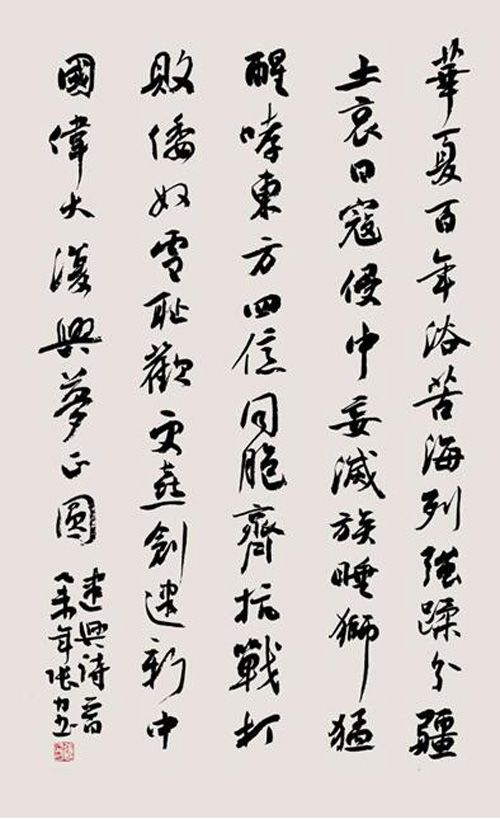 華夏百年浴苦海列強蹂分疆
土哀日寇侵中妄滅族睡獅猛
醒哮東方四億同胞齊抗戰打
敗倭奴雪恥歡更喜創建新中
國偉大復興夢正圓
建興诗一首
乙未年張力书